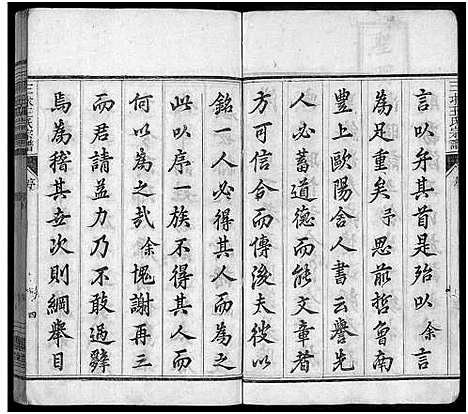 言以弁其首是殆以余言
為足重矣予思前哲魯南
豐上歐陽舍人書云譽先
人必蓄道德而能文章者
方可信合而傳後夫彼以
銘一人必得其人而為之
此以序一族不得其人
何以為之哉余愧謝再三
而君請益力乃不敢過辭
焉為稽其世次則綱舉目
王氏宗譜
序
四